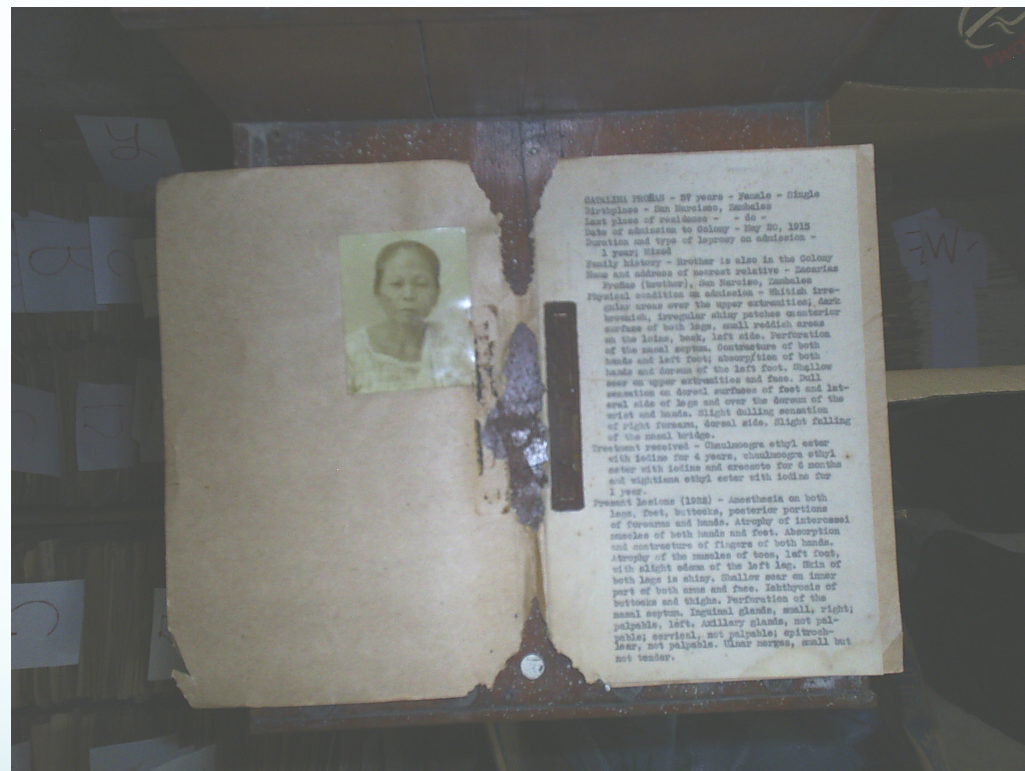 CATALINA PREÑAS - 57 years - Female - Single
Birthplace - San Narcisco, Zambales
Last place of residence - - do -
Date of admission to Colony - May 20, 1915
Duration and type of leprosy on admission -
1 year; Mixed
Family history - Brother is also in the Colony
Name and address of nearest relative - Zacarias
Preñas (brother), San Narciso, Zambales
Physical condition on admission - Whitish irre-
gular areas over the upper extremities; dark
brownish, irregular shiny patches on anterior
surface of both legs, small reddish areas
on the loins, back, left side. Perforation
of the nasal septum. Contracture of both
hands and left foot; absorption of both
hands and dorsum of the left foot. Shallow
scar on upper extremities and face. Dull
sensation on dorsal surfaces of feet and lat-
eral side of legs and over the dorsum of the
wrist and hands. Slight dulling sensation
of right forearm, dorsal side. Slight falling
of the nasal bridge.
Treatment received - Chaulmoogra ethyl ester
with iodine for 4 years, chaulmoogra ethyl
ester with iodine and creosote for 6 months
and wightiana ethyl ester with iodine for
1 year.
Present lesions (1932) - Anesthesia on both
legs, feet, buttocks, posterior portions
of forearms and hands. Atrophy of interossei
muscles of both hands and feet. Absorption
and contracture of fingers of both hands.
Atrophy of the muscles of toes, left foot,
with slight edema of the left leg. Skin of
both legs is shiny. Shallow scar on inner
part of both arms and face. Ichthyosis of
buttocks and thighs. Perforation of the
nasal septum. Inguinal glands, small, right;
palpable, left. Axillary glands, not pal-
pable; cervical, not palpable; epitroch-
lear, not palpable. Ulnar nerves, small but
not tender.